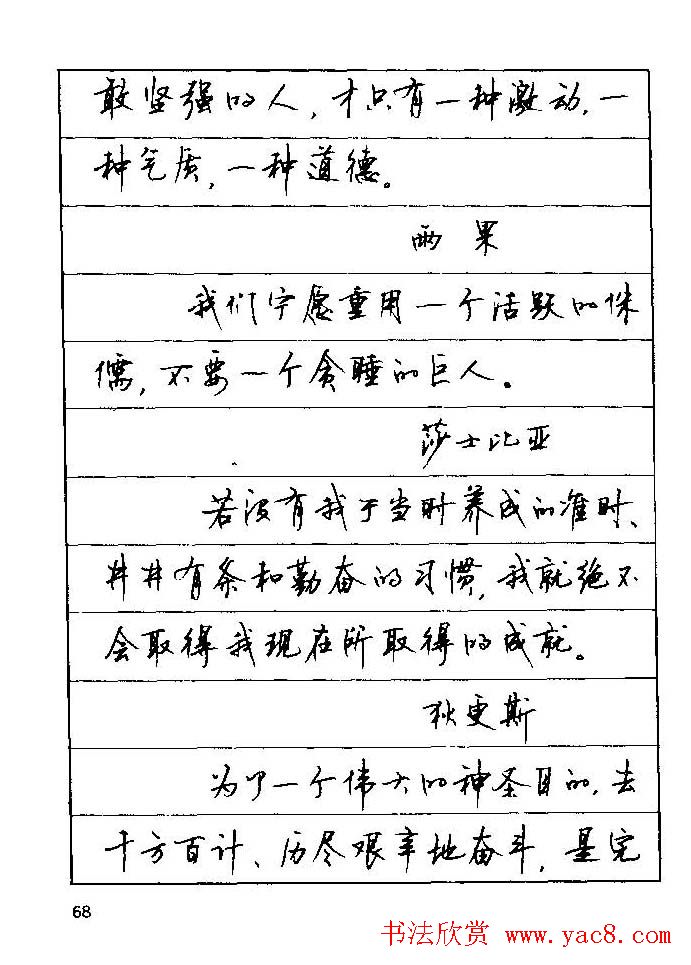 敢坚强的人，才只有一种激动，一
种气质，一种道德。
雨果
我们宁愿重用一个活跃的侏
儒，不要一个贪睡的巨人。
莎士比亚
若没有我于当时养成的准时、
井井有条和勤奋的习惯，我就绝不
会取得我现在所取得的成就。
狄更斯
为了一个伟大的神圣目的，去
千方百计、历尽艰辛地奋斗，是完
68
书法欣赏 www.yac8.com